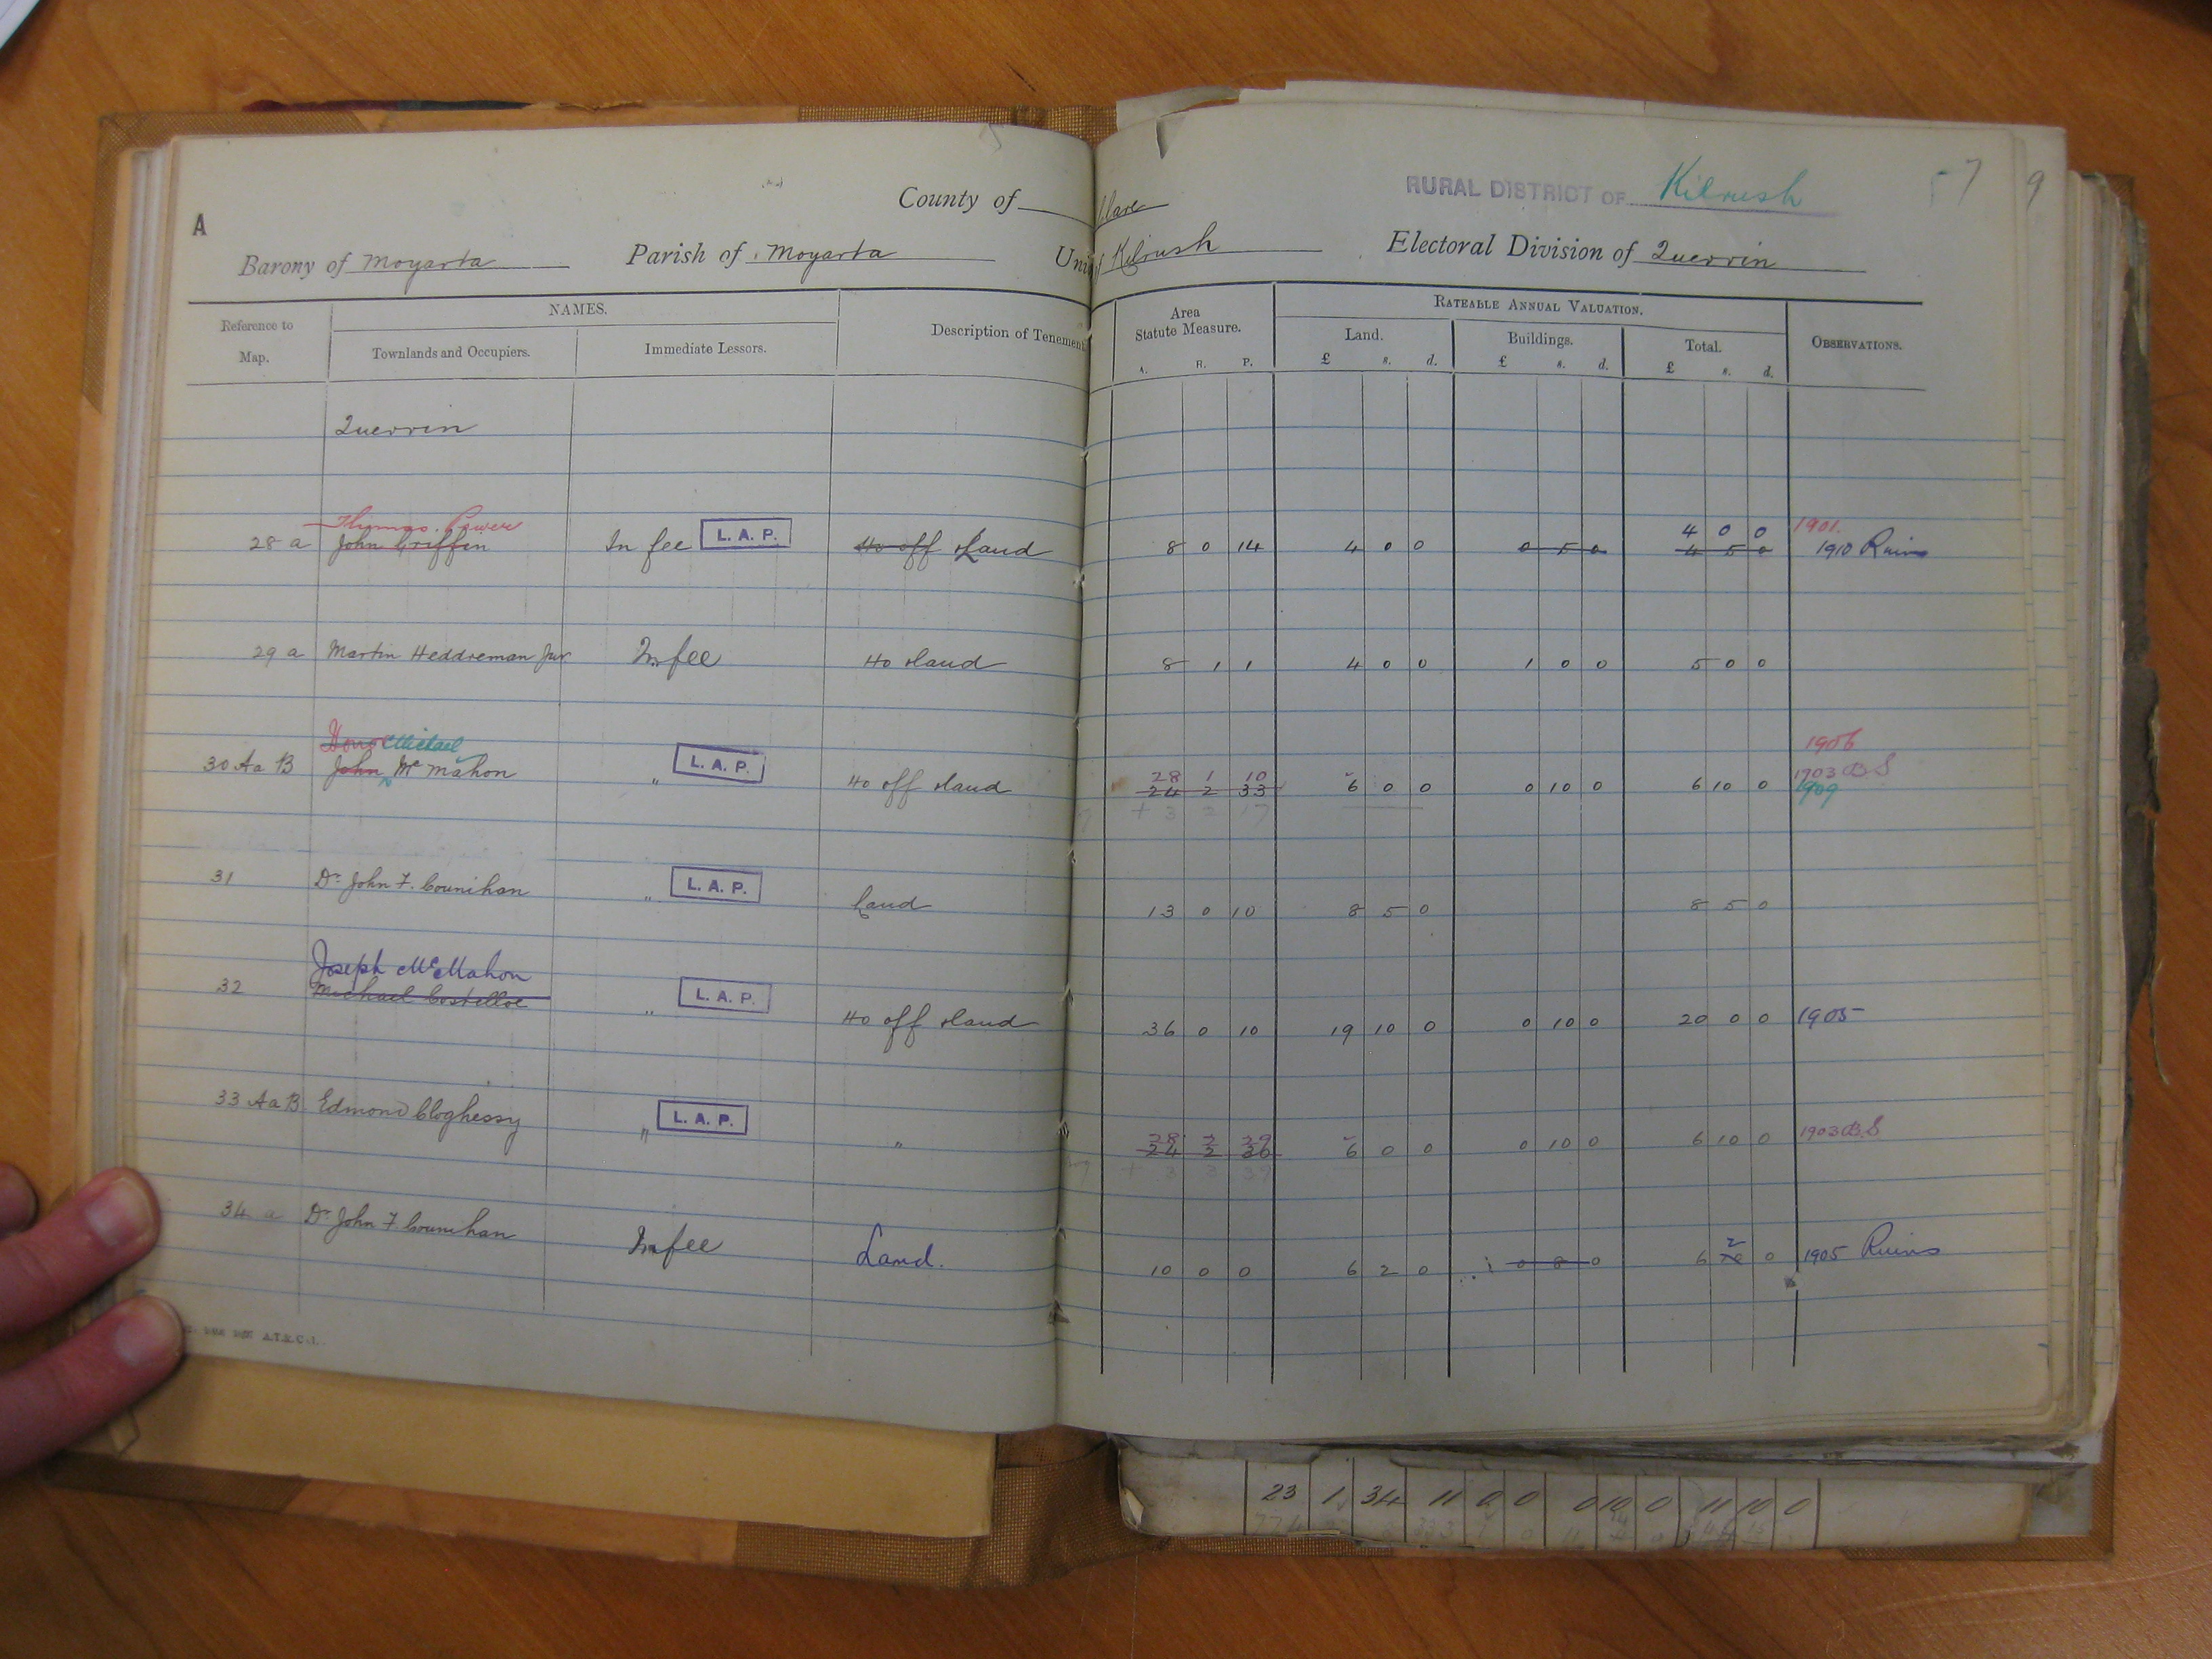 A
County of Clare
RURAL DISTRICT OF Kilrush
57 9
Barony of Moyarta Parish of Moyarta Union of Kilrush Electoral Division of Querrin
Reference to Map. NAMES. Townlands and Occupiers. Immediate Lessors. Description of Tenement Area Statute Measure. A. R. P. RATEABLE ANNUAL VALUATION. Land. £ s. d. Buildings. £ s. d. Total. £ s. d. OBSERVATIONS.
Querrin
Thomas Power 4 0 0 1901.
28 a John Griffin In fee L. A. P. Ho off & Land 8 0 14 4 0 0 0 5 0 4 5 0 1910 Ruins
29 a Martin Heddreman Junr In fee Ho & land 8 1 1 4 0 0 1 0 0 5 0 0
Honor Michael 1906
30 Aa B John Mc Mahon " L. A. P. Ho off & land 28 1 10 6 0 0 0 10 0 6 10 0 1903 B S
24 2 33 1909
+ 3 2 17
31 Dr John F. Counihan " L. A. P. Land 13 0 10 8 5 0 8 5 0
Joseph McMahon
32 Michael Costelloe " L. A. P. Ho off & land 36 0 10 19 10 0 0 10 0 20 0 0 1905
33 Aa B Edmond Cloghessy " L. A. P. " 28 2 29 6 0 0 0 10 0 6 10 0 1903 B.S
24 2 30
+ 3 3 39
2
34 a Dr John F Counihan In fee Land. 10 0 0 6 2 0 0 8 0 6 10 0 1905 Ruins
23 1 34 11 0 0 0 10 0 11 10 0